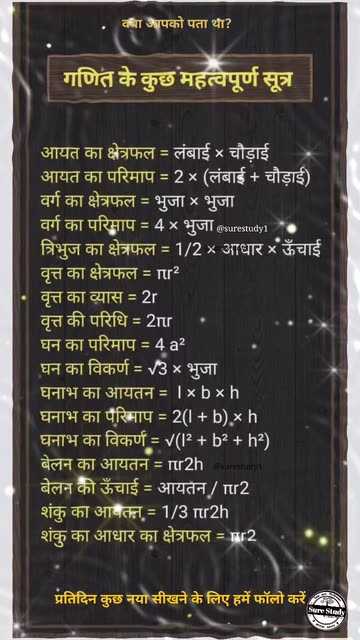 क्या आपको पता था?
गणित के कुछ महत्वपूर्ण सूत्र
आयत का क्षेत्रफल = लंबाई × चौड़ाई
आयत का परिमाप = 2 × (लंबाई + चौड़ाई)
वर्ग का क्षेत्रफल = भुजा × भुजा
वर्ग का परिमाप = 4 × भुजा @surestudy1
त्रिभुज का क्षेत्रफल = 1/2 × आधार × ऊँचाई
वृत्त का क्षेत्रफल = πr²
वृत्त का व्यास = 2r
वृत्त की परिधि = 2πr
घन का परिमाप = 4 a²
घन का विकर्ण = √3 × भुजा
घनाभ का आयतन = l × b × h
घनाभ का परिमाप = 2(l + b) × h
घनाभ का विकर्ण = √(l² + b² + h²)
बेलन का आयतन = πr2h @surestudy1
बेलन की ऊँचाई = आयतन / πr2
शंकु का आयतन = 1/3 πr2h
शंकु का आधार का क्षेत्रफल = πr2
प्रतिदिन कुछ नया सीखने के लिए हमें फॉलो करें
Sure Study